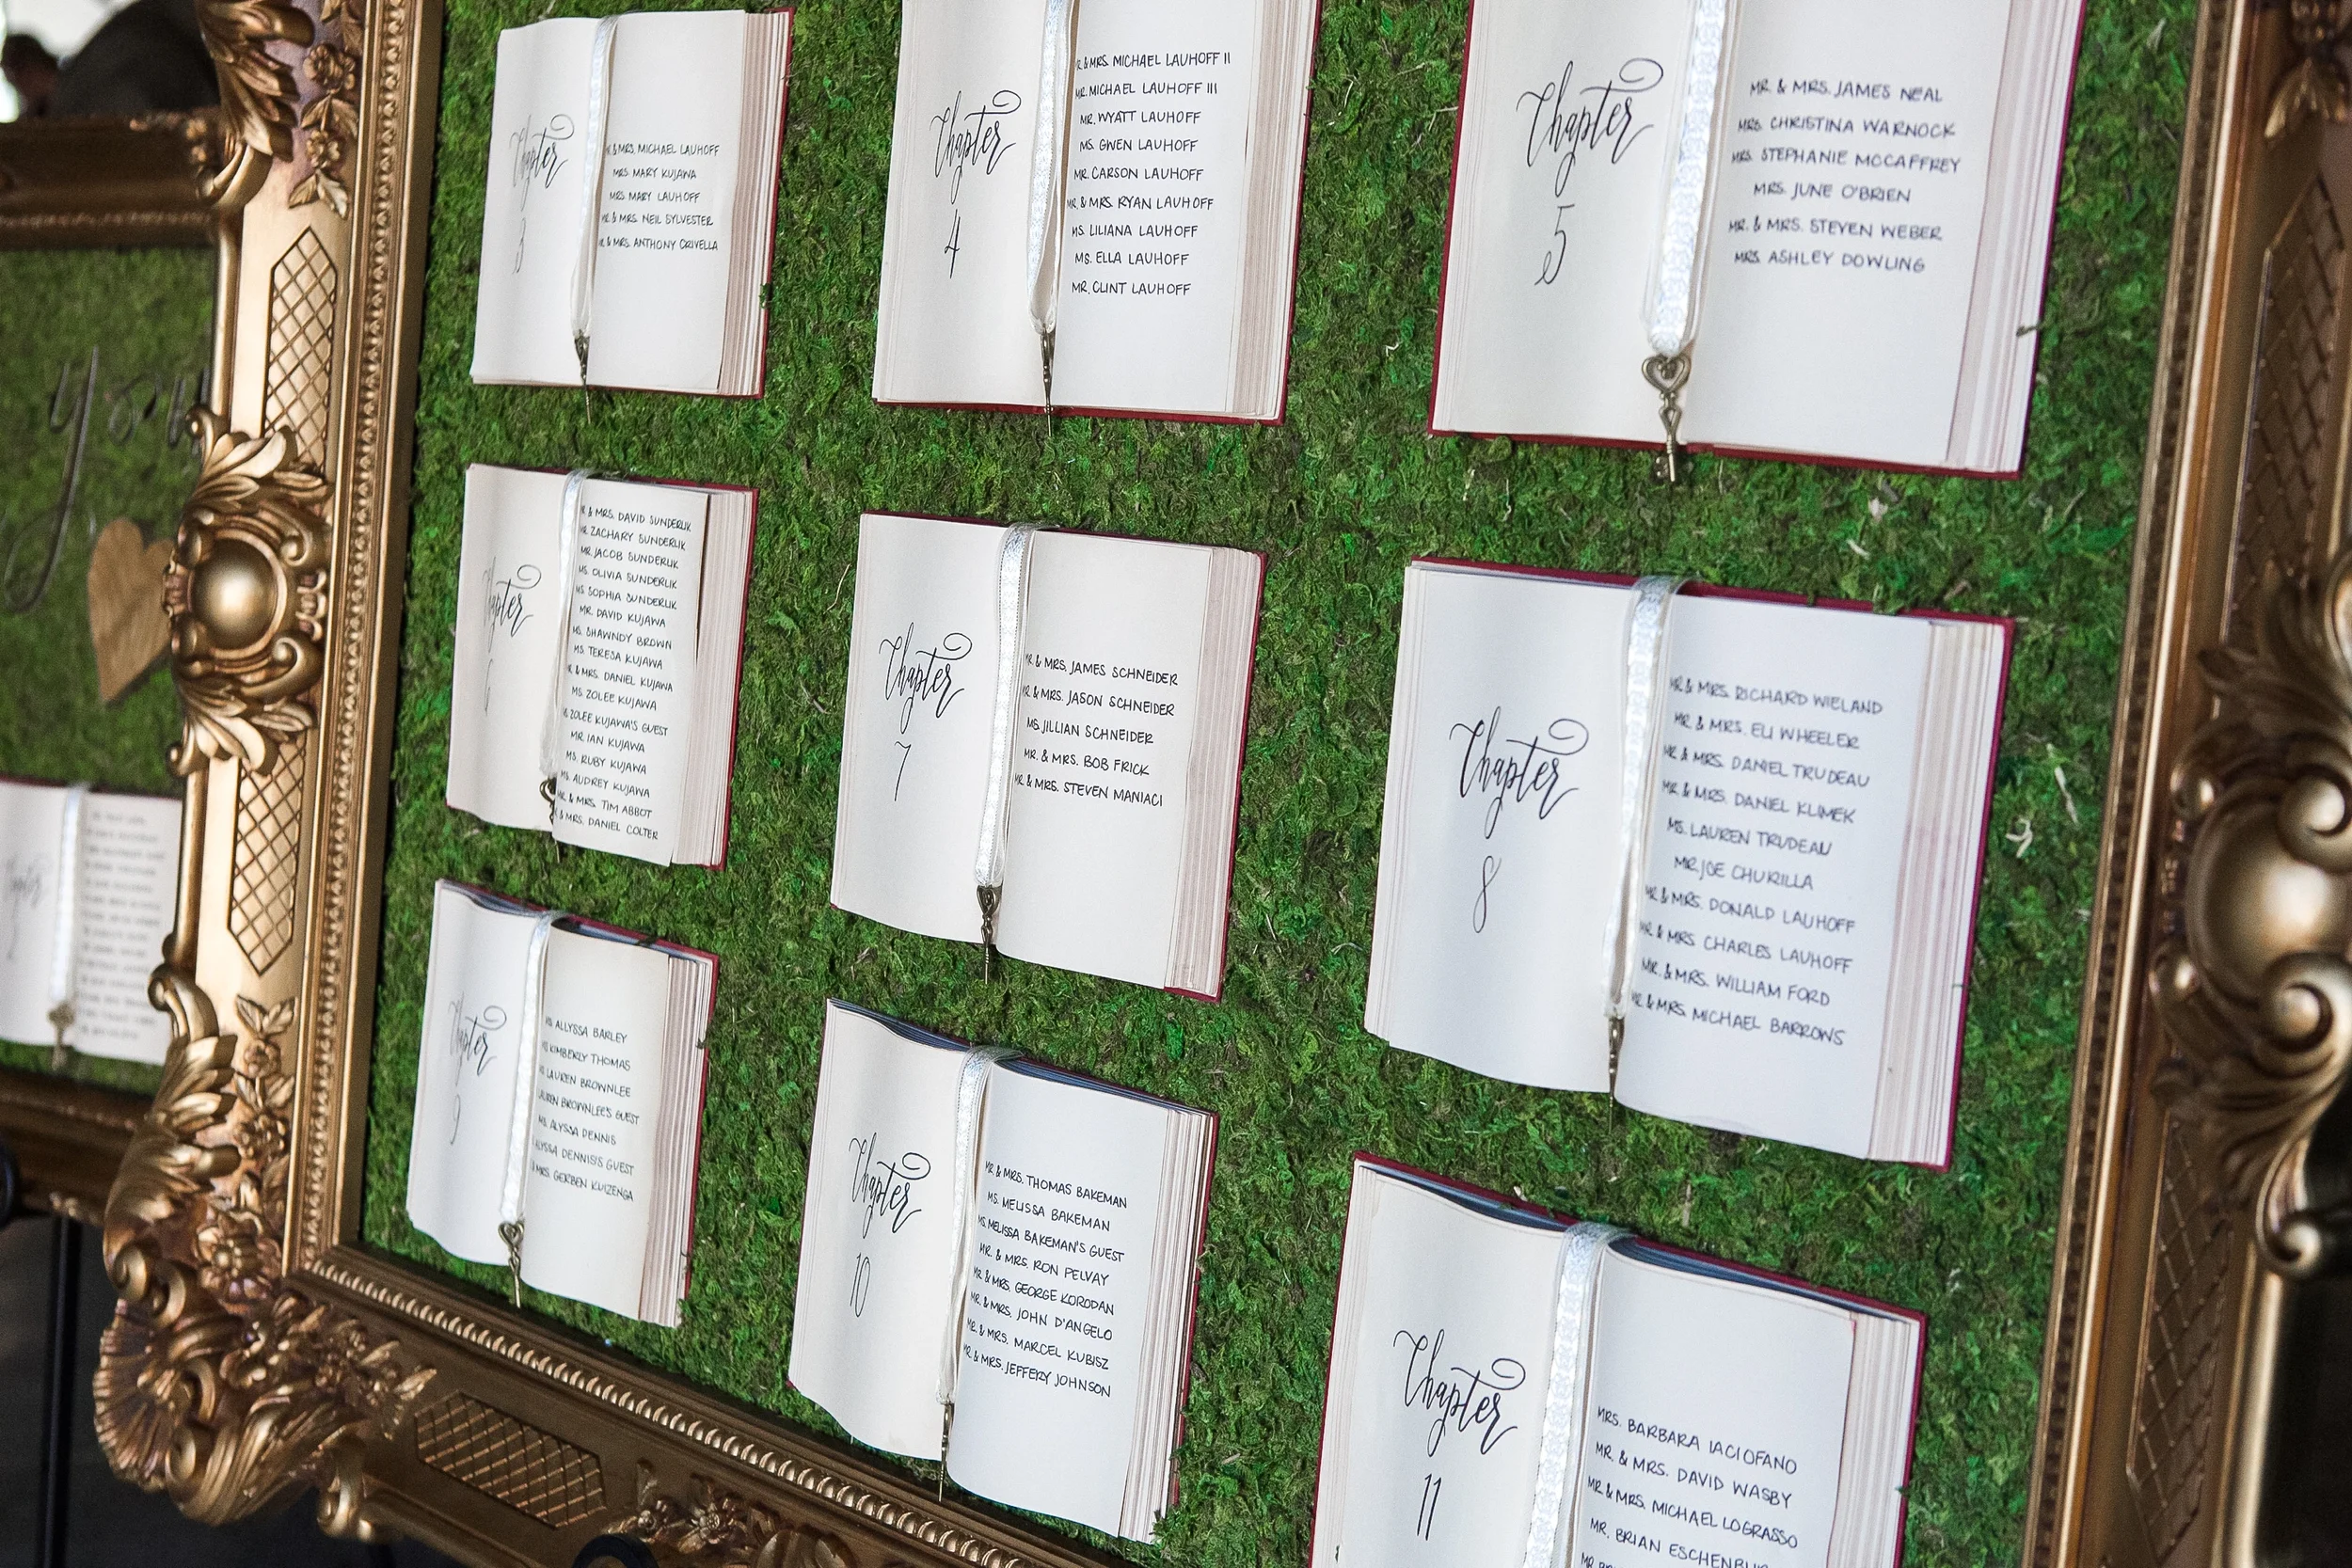 Chapter
3
& MRS. MICHAEL LAUHOFF
MRS. MARY KUJAWA
MRS. MARY LAUHOFF
& MRS. NEIL SYLVESTER
& MRS. ANTHONY CRIVELLA
Chapter
4
& MRS. MICHAEL LAUHOFF II
MR. MICHAEL LAUHOFF III
MR. WYATT LAUHOFF
MS. GWEN LAUHOFF
MR. CARSON LAUHOFF
& MRS. RYAN LAUHOFF
MS. LILIANA LAUHOFF
MS. ELLA LAUHOFF
MR. CLINT LAUHOFF
Chapter
5
MR. & MRS. JAMES NEAL
MRS. CHRISTINA WARNOCK
MRS. STEPHANIE MCCAFFREY
MRS. JUNE O'BRIEN
MR. & MRS. STEVEN WEBER
MRS. ASHLEY DOWLING
your
Chapter
6
& MRS. DAVID SUNDERLIK
MR. ZACHARY SUNDERLIK
MR. JACOB SUNDERLIK
MS. OLIVIA SUNDERLIK
MS. SOPHIA SUNDERLIK
MR. DAVID KUJAWA
MS. SHAWNDY BROWN
MS. TERESA KUJAWA
& MRS. DANIEL KUJAWA
MS. ZOLEE KUJAWA
ZOLEE KUJAWA'S GUEST
MR. IAN KUJAWA
MS. RUBY KUJAWA
MS. AUDREY KUJAWA
& MRS. TIM ABBOT
& MRS. DANIEL COLTER
Chapter
7
MR. & MRS. JAMES SCHNEIDER
MR. & MRS. JASON SCHNEIDER
MS. JILLIAN SCHNEIDER
MR. & MRS. BOB FRICK
MR. & MRS. STEVEN MANIACI
Chapter
8
MR. & MRS. RICHARD WIELAND
MR. & MRS. ELI WHEELER
MR. & MRS. DANIEL TRUDEAU
MR. & MRS. DANIEL KLIMEK
MS. LAUREN TRUDEAU
MR. JOE CHURILLA
MR. & MRS. DONALD LAUHOFF
MR. & MRS. CHARLES LAUHOFF
MR. & MRS. WILLIAM FORD
MR. & MRS. MICHAEL BARROWS
Chapter
2
Chapter
9
MS. ALLYSSA BARLEY
MS. KIMBERLY THOMAS
LAUREN BROWNLEE
LAUREN BROWNLEE'S GUEST
MS. ALYSSA DENNIS
ALYSSA DENNIS'S GUEST
MRS. GERBEN KUIZENGA
Chapter
10
MR. & MRS. THOMAS BAKEMAN
MS. MELISSA BAKEMAN
MS. MELISSA BAKEMAN'S GUEST
MR. & MRS. RON PELVAY
MR. & MRS. GEORGE KORODAN
MR. & MRS. JOHN D'ANGELO
MR. & MRS. MARCEL KUBISZ
MR. & MRS. JEFFERY JOHNSON
Chapter
11
MRS. BARBARA IACIOFANO
MR. & MRS. DAVID WASBY
MR. & MRS. MICHAEL LOGRASSO
MR. BRIAN